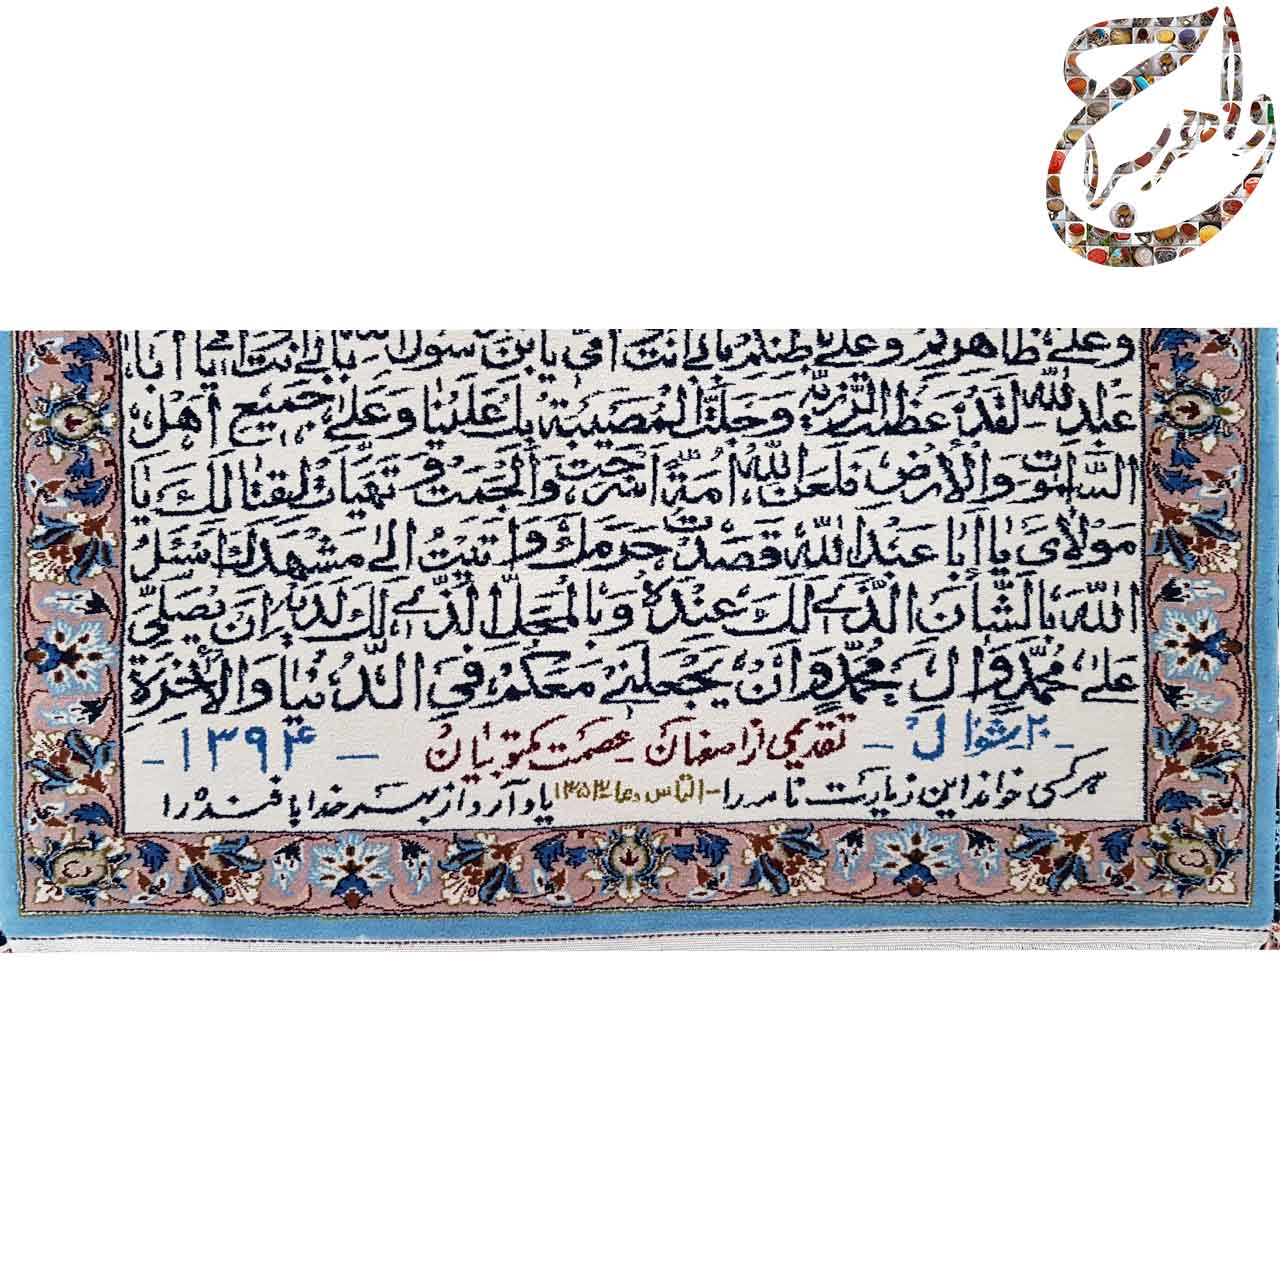 وعلى ظاهركم وعلى باطنكم بابي انت امي يا بن رسول الله بابي انت امي يا ابا
عبد الله لقد عظمت الرزية وجلت المصيبة بك علينا وعلى جميع اهل
السموات والارض فلعن الله امة اسرجت والجمت وتهيات لقتالك يا
مولاي يا ابا عبد الله قصدت حرمك واتيت الى مشهدك اسئل
الله بالشان الذي لك عنده وبالمحل الذي لك لديه ان يصلي
على محمد وال محمد وان يجعلني معكم في الدنيا والاخرة
۲۰ شوال - تقدیمی از اصفهان عصمت مکتوبیان - ۱۳۹۴ -
هر کسی خواند این زیارت نامه را - التماس دعا ۱۳۵۳ یاد آرد از بهر خدا بافنده را